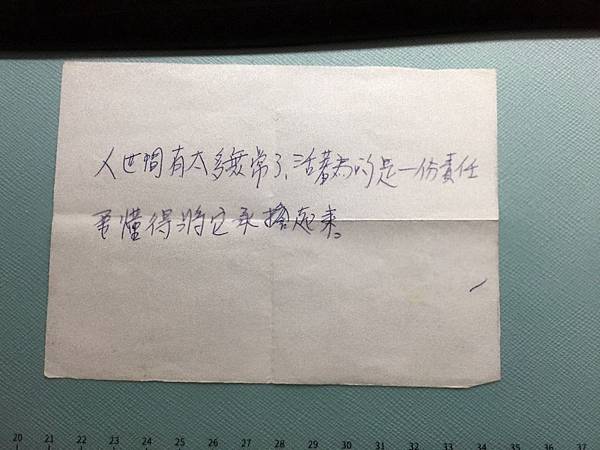 人世間有太多無常了、活著為的是一份責任
要懂得將它承擔起來。
20 21 22 23 24 25 26 27 28 29 30 31 32 33 34 35 36 37